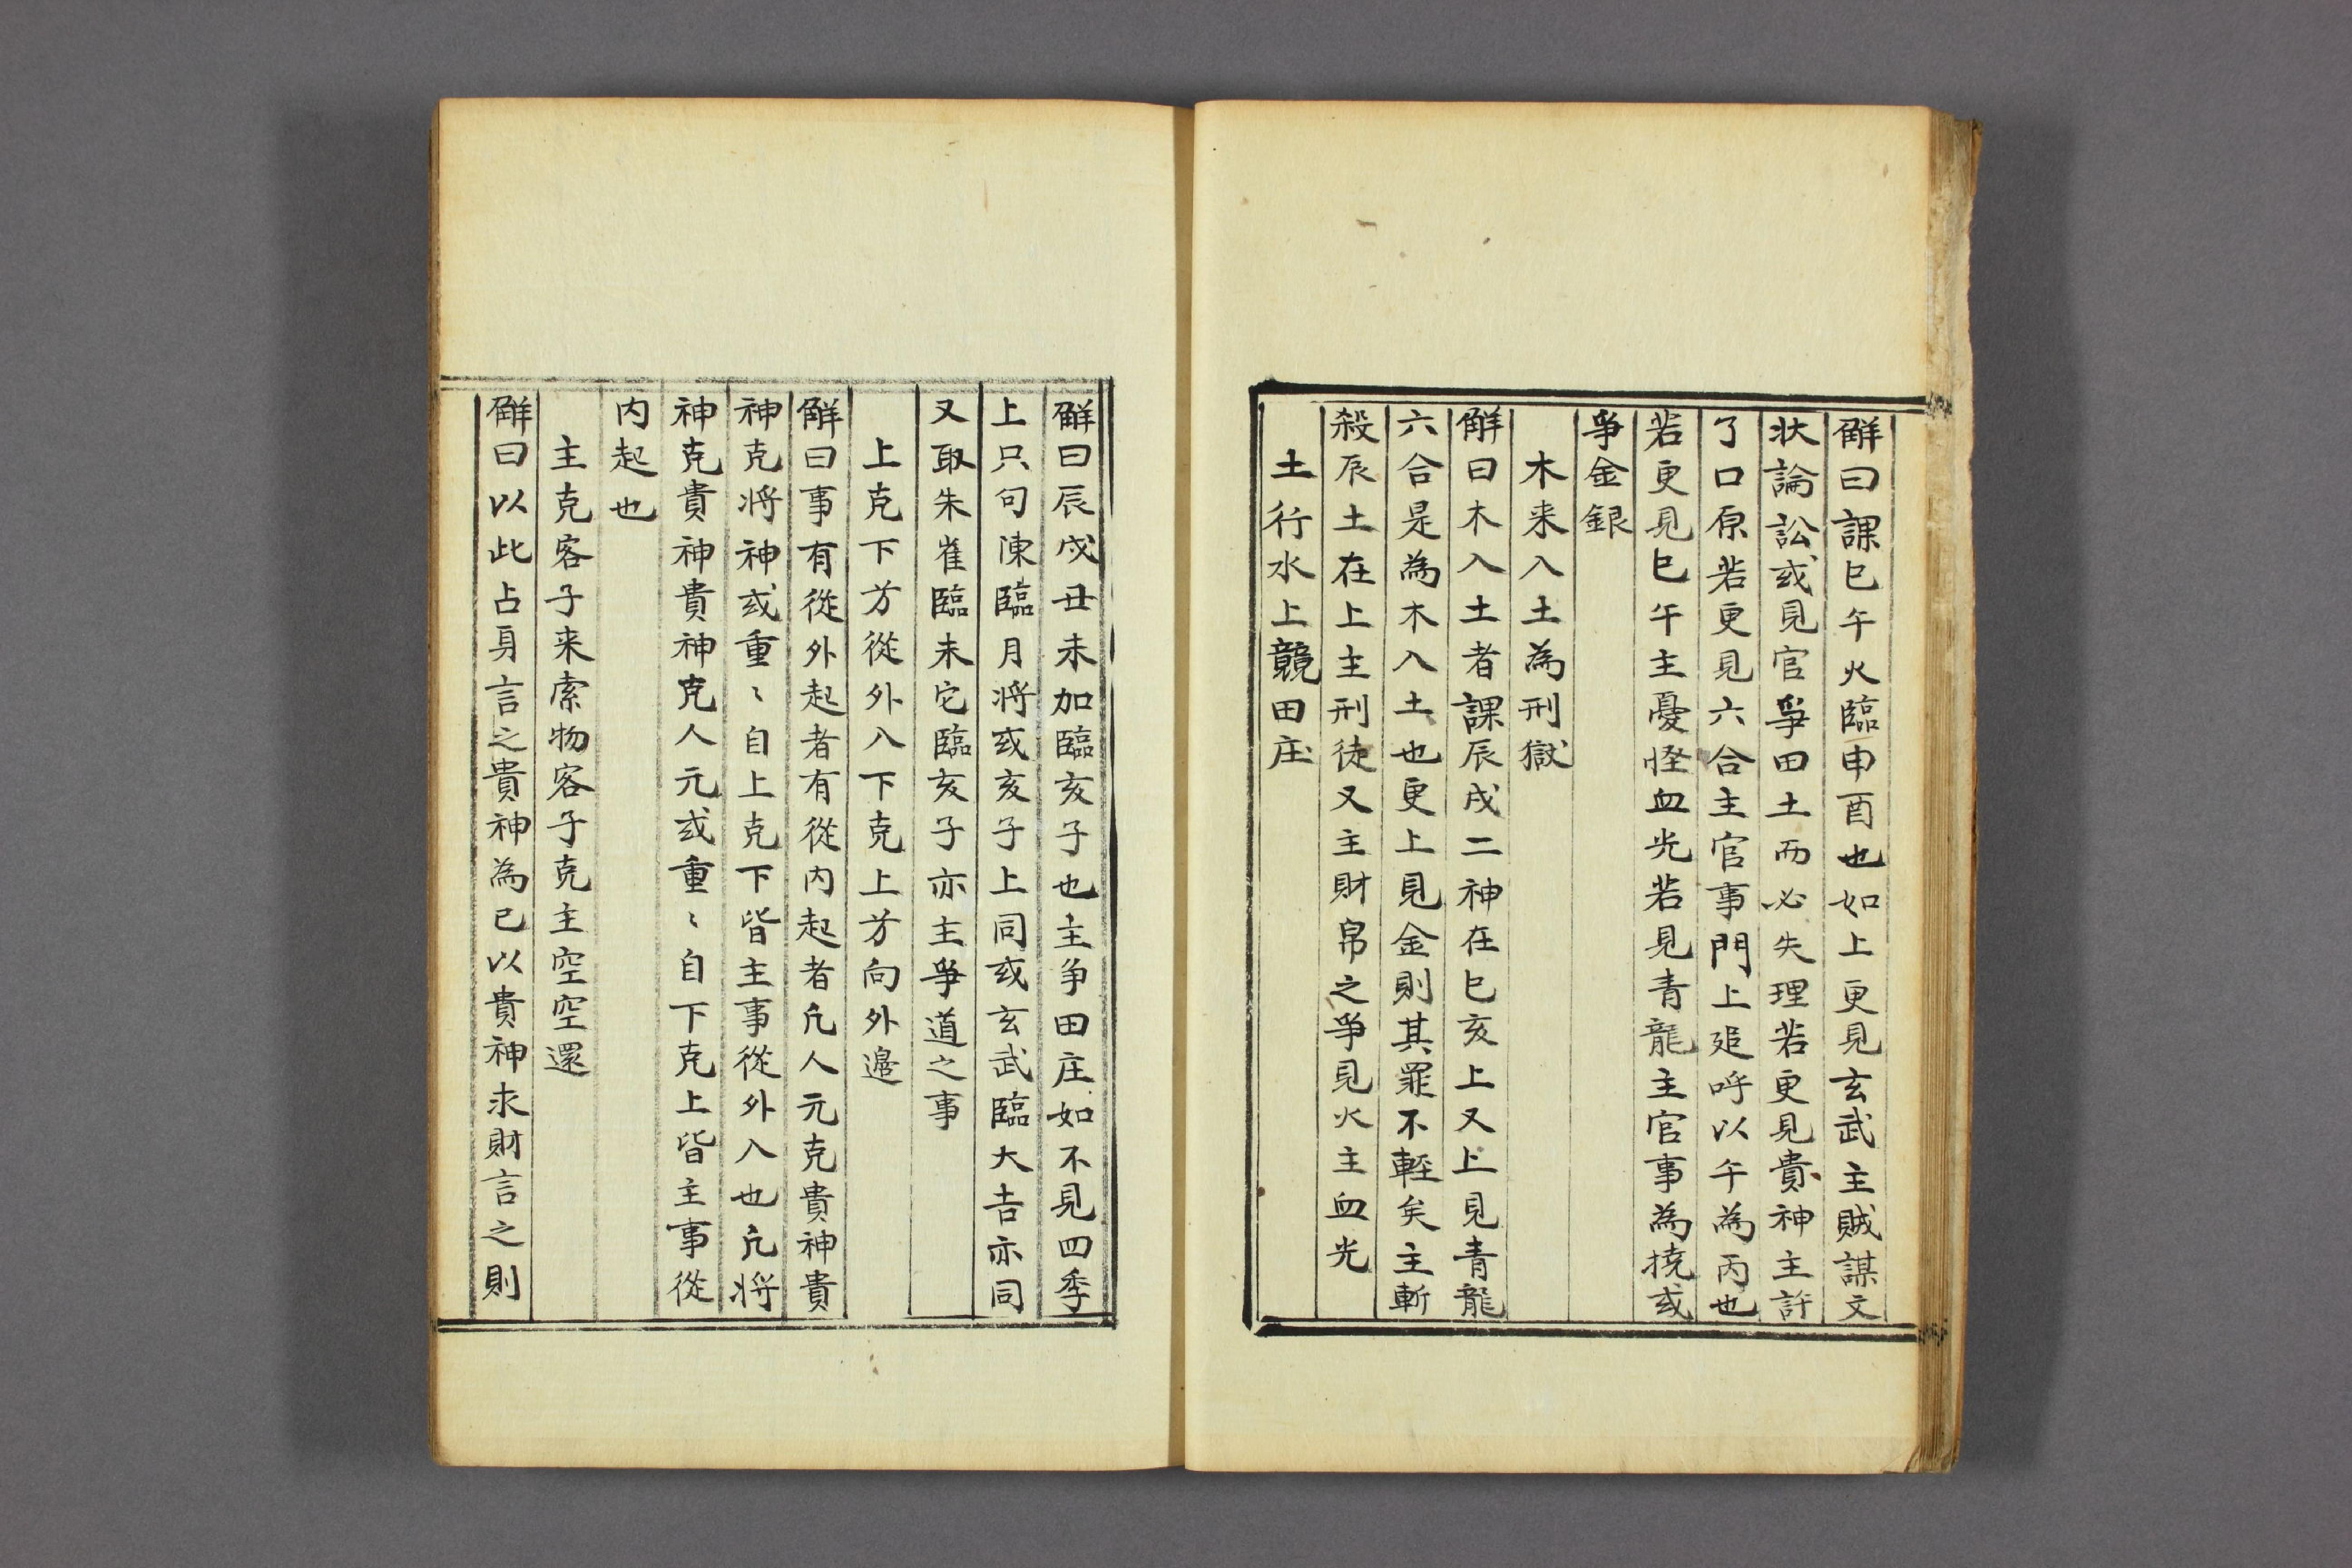 觧曰課巳午火臨申酉也如上更見玄武主賊謀文
狀論訟或見官爭田土而必失理若更見貴神主許
了口原若更見六合主官事門上追呼以午為丙也
若更見巳午主憂怪血光若見青龍主官事為撓或
爭金銀
木来入土為刑獄
觧曰木入土者課辰戌二神在巳亥上又上見青龍
六合是為木入土也更上見金則其罪不輕矣主斬
殺辰土在上主刑徒又主財帛之爭見火主血光
土行水上競田庄
觧曰辰戌丑未加臨亥子也主争田庄如不見四季
上只句陳臨月將或亥子上同或玄武臨大吉亦同
又取朱雀臨未它臨亥子亦主爭道之事
上克下方從外入下克上方向外邉
觧曰事有從外起者有從内起者凢人元克貴神貴
神克将神或重〻自上克下皆主事從外入也凢将
神克貴神貴神克人元或重〻自下克上皆主事從
内起也
主克客子来索物客子克主空空還
觧曰以此占身言之貴神為已以貴神求財言之則